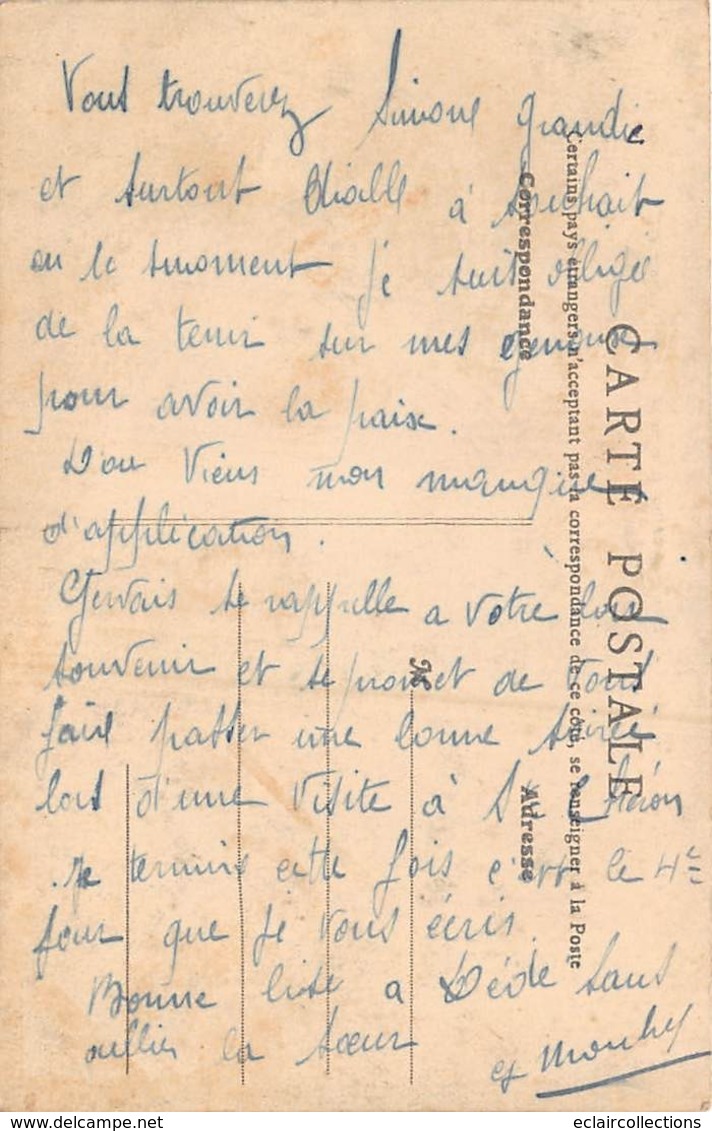 Vous trouverez Simone grandie
et surtout Diable à souhait
en le moment je suis obligée
de la tenir sur mes genoux
pour avoir la paix.
D'ou viens mon manque
d'application.
Gervais se rappelle a votre bon
souvenir et se promet de vous
faire passer une bonne soirée
lors d'une visite à St
Je termine cette fois c'est le 4e
jour que je vous écris.
Bonne bise a Dédé sans
oublier la soeur
CARTE POSTALE
Certains pays étrangers n'acceptant pas la correspondance de ce côté, se renseigner à la Poste
Correspondance
Adresse
M
eclaircollections